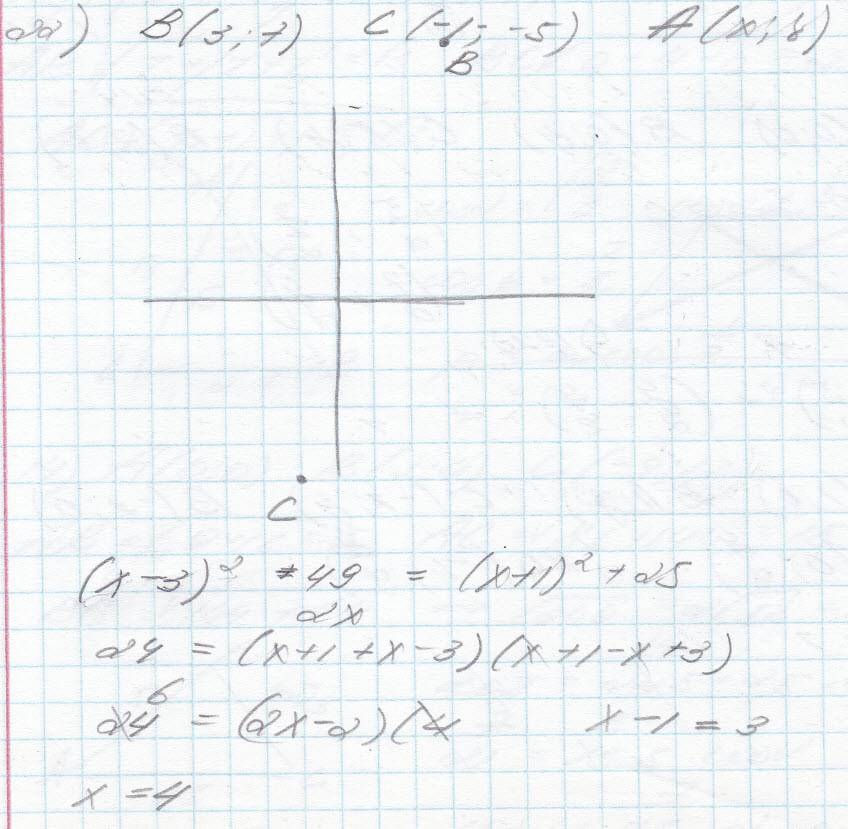 22) B(3;7) C(-1;-5) A(x;y)
B
C
(x-3)² +49 = (x+1)² +25
2x
24 = (x+1+x-3)(x+1-x+3)
6
24 = (2x-2)(4 x-1=3
x=4